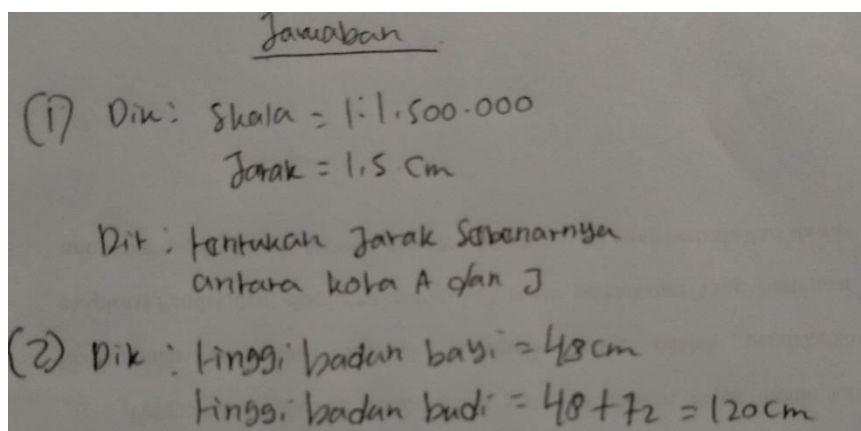 Jawaban
(1) Dik: Skala = 1:1.500.000
Jarak = 1,5 cm
Dit: tentukan Jarak Sebenarnya
antara kota A dan J
(2) Dik: tinggi badan bayi = 48cm
tinggi badan budi = 48+72 = 120cm